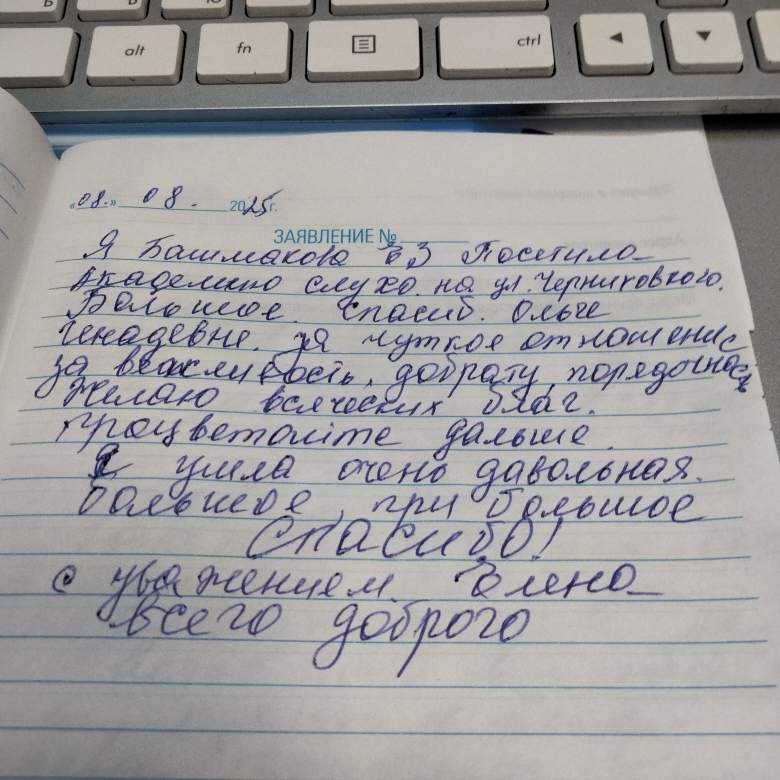 alt
fn
ctrl
«08.» 08. 2025г.
ЗАЯВЛЕНИЕ №
Я Башмакова ЕЗ Посетила
Академию слухо. на ул. Черниковкого.
Большое спасиб. Ольге
Генадевне. за чуткое отношение
за вежливость, доброту, порядочность
Желаю всяческих благ.
процветайте дальше.
Я ушла очень давольная.
большое, при большое
Спасибо!
с уважением Елена
всего доброго